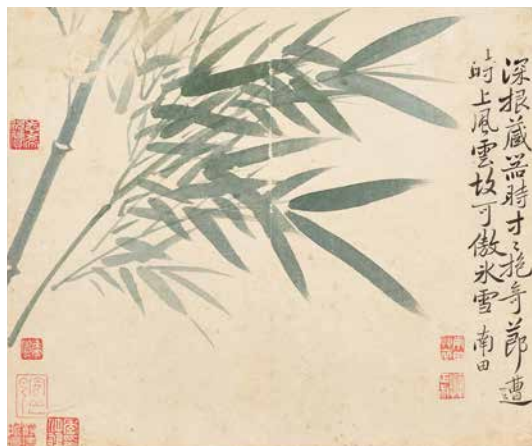 深根藏器時寸〻抱奇節遭
時上風雲故可傲氷雪 南田